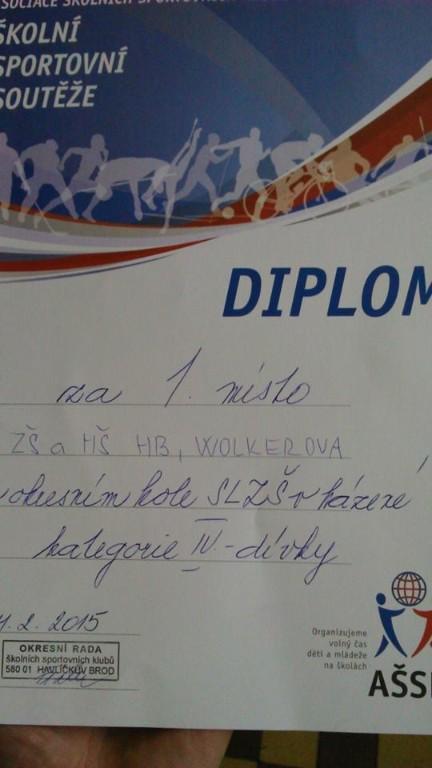 SOCIACE ŠKOLNÍCH SPORTOVNÍCH
ŠKOLNÍ
SPORTOVNÍ
SOUTĚŽE
DIPLOM
za 1. místo
ZŠ a MŠ HB, WOLKEROVA
okresním kole SLZŠ v házené
kategorie IV.-dívky
. 2. 2015
OKRESNÍ RADA
školních sportovních klubů
580 01 HAVLÍČKŮV BROD
Organizujeme
volný čas
dětí a mládeže
na školách
AŠS